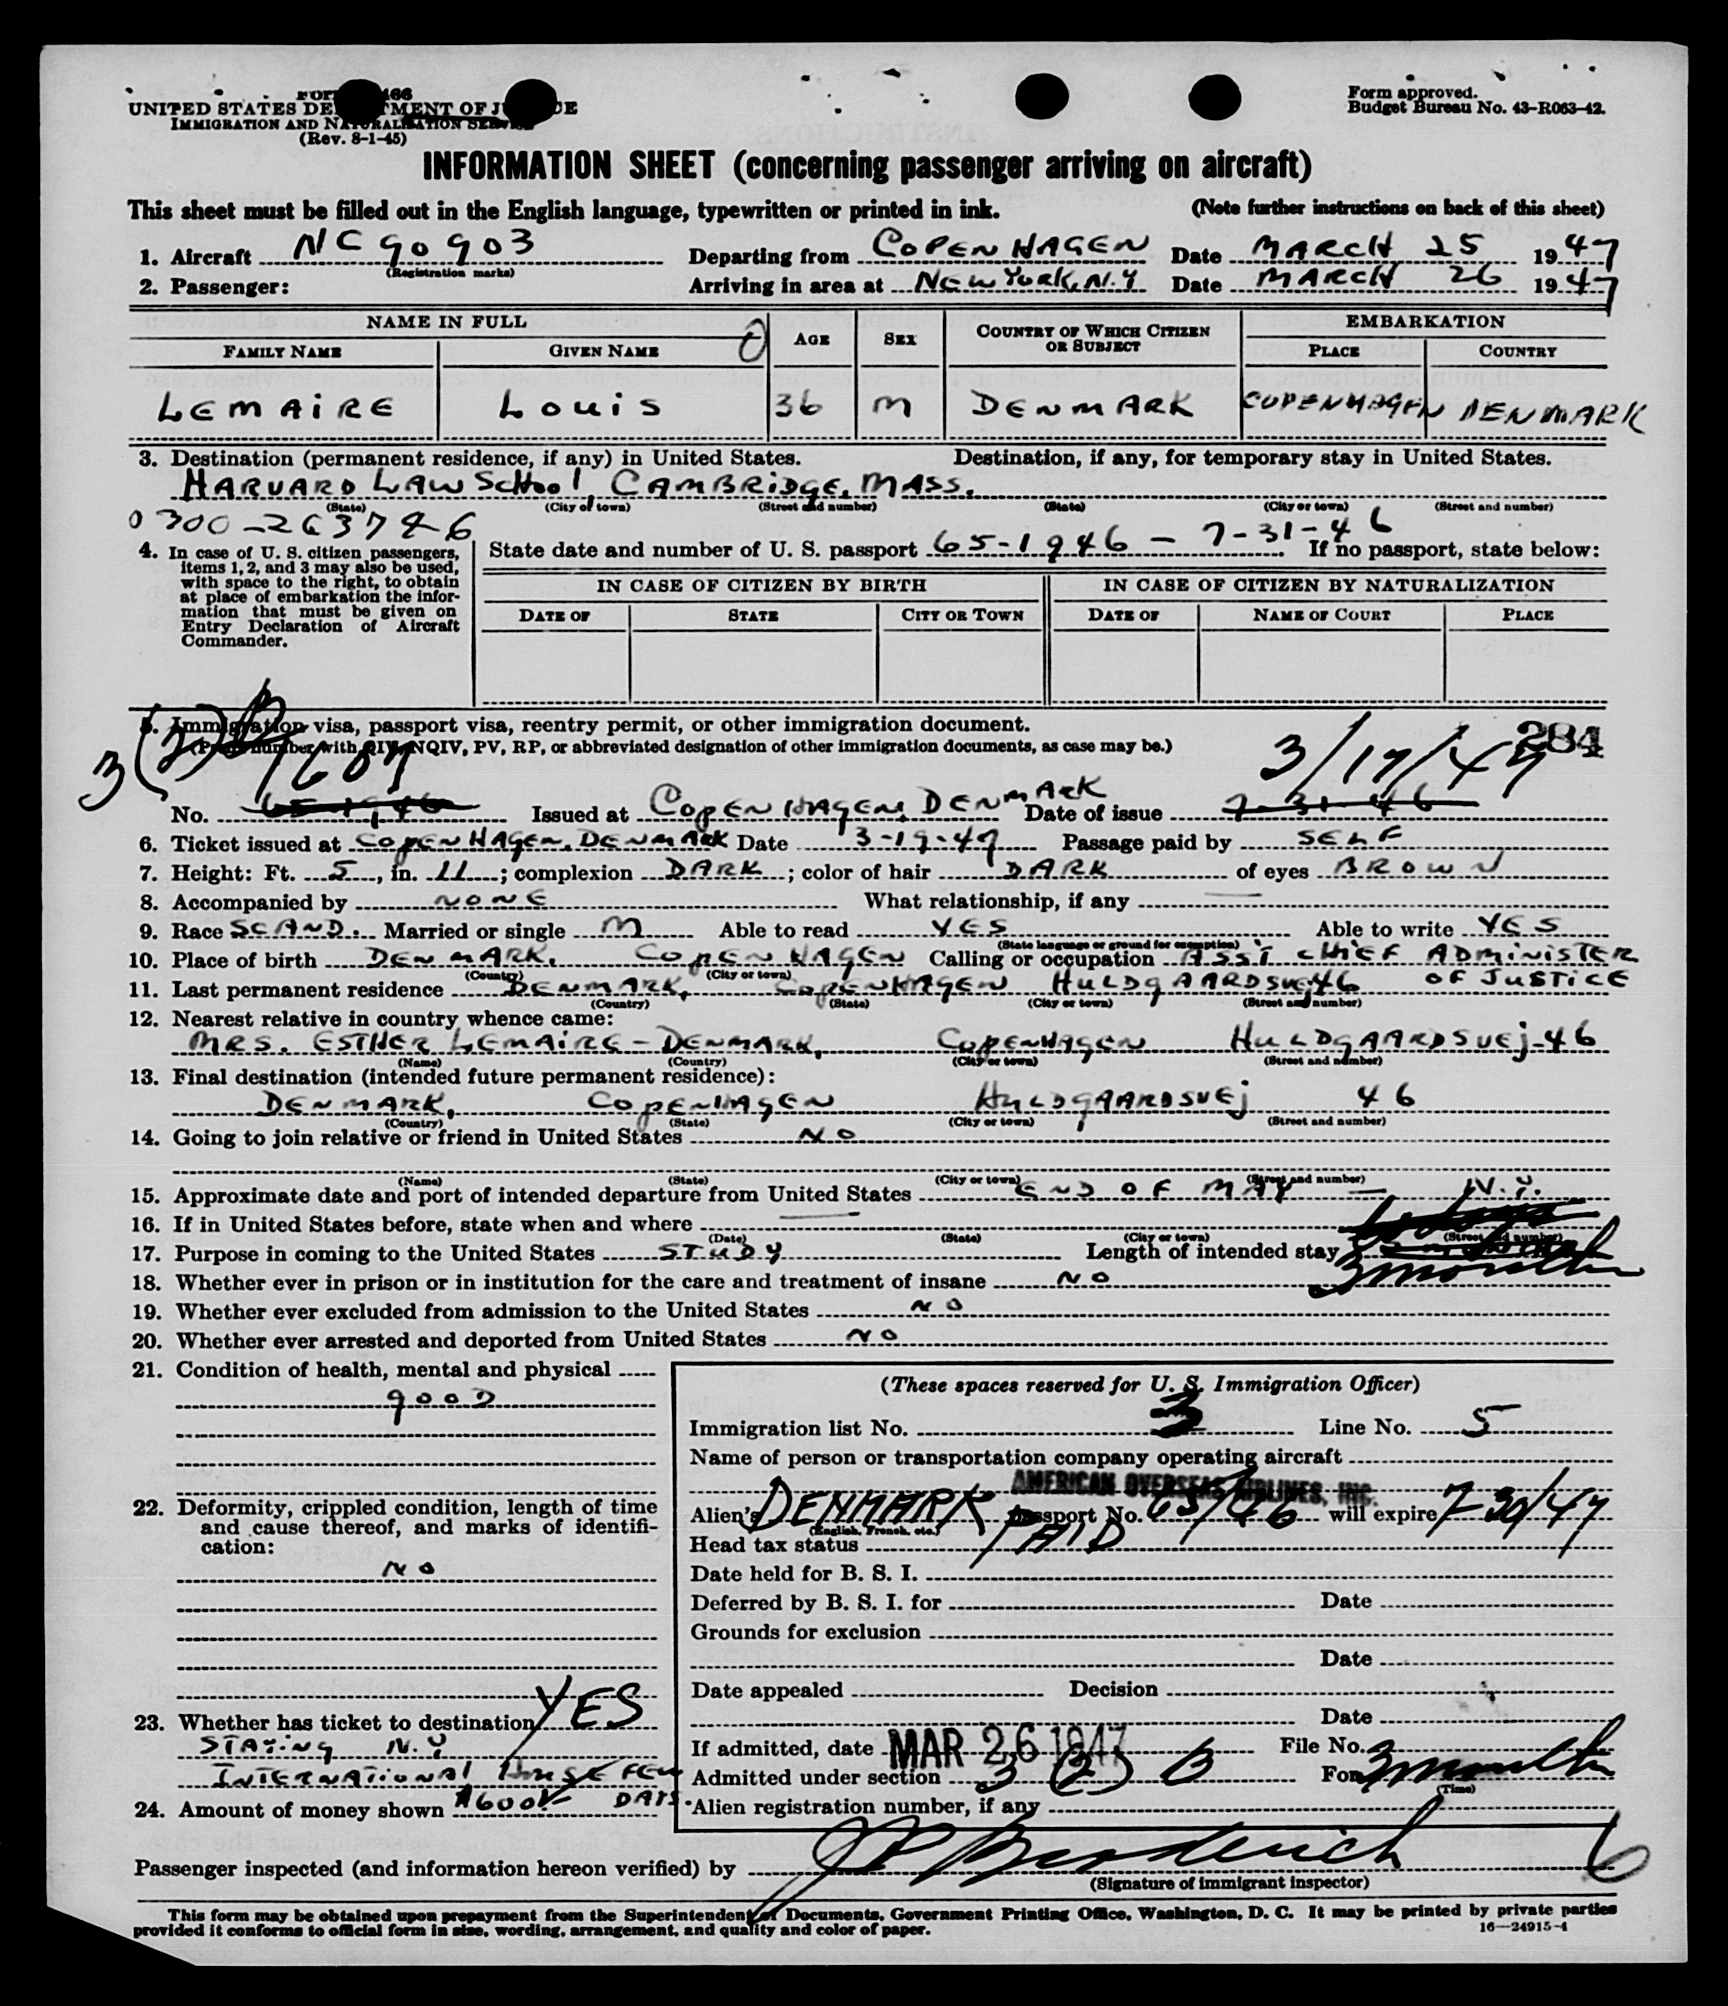 UNITED STATES DEPARTMENT OF JUSTICE
IMMIGRATION AND NATURALIZATION SERVICE
(Rev. 8-1-45)
Form approved.
Budget Bureau No. 43-R063-42.
INFORMATION SHEET (concerning passenger arriving on aircraft)
This sheet must be filled out in the English language, typewritten or printed in ink. (Note further instructions on back of this sheet)
1. Aircraft NC 90903 Departing from COPENHAGEN Date MARCH 25 1947
(Registration marks)
2. Passenger: Arriving in area at NEW YORK, N.Y Date MARCH 26 1947
NAME IN FULL AGE SEX COUNTRY OF WHICH CITIZEN OR SUBJECT EMBARKATION
FAMILY NAME GIVEN NAME PLACE COUNTRY
LEMAIRE LOUIS 36 M DENMARK COPENHAGEN DENMARK
3. Destination (permanent residence, if any) in United States. Destination, if any, for temporary stay in United States.
HARVARD LAW SCHOOL, CAMBRIDGE, MASS.
(State) (City or town) (Street and number) (State) (City or town) (Street and number)
0300-263746
4. In case of U. S. citizen passengers, items 1, 2, and 3 may also be used, with space to the right, to obtain at place of embarkation the information that must be given on Entry Declaration of Aircraft Commander.
State date and number of U. S. passport 65-1946 - 7-31-46 If no passport, state below:
IN CASE OF CITIZEN BY BIRTH IN CASE OF CITIZEN BY NATURALIZATION
DATE OF STATE CITY OR TOWN DATE OF NAME OF COURT PLACE
5. Immigration visa, passport visa, reentry permit, or other immigration document. 284
(Prefix number with QIV, NQIV, PV, RP, or abbreviated designation of other immigration documents, as case may be.)
3 (2) B 1607 3/17/47
No. 65-1946 Issued at COPENHAGEN, DENMARK Date of issue 7-31-46
6. Ticket issued at COPENHAGEN, DENMARK Date 3-19-47 Passage paid by SELF
7. Height: Ft. 5, in. 11; complexion DARK; color of hair DARK of eyes BROWN
8. Accompanied by NONE What relationship, if any —
9. Race SCAND. Married or single M Able to read YES Able to write YES
(State language or ground for exemption)
10. Place of birth DENMARK, COPENHAGEN Calling or occupation ASST CHIEF ADMINISTER
(Country) (City or town)
OF JUSTICE
11. Last permanent residence DENMARK, COPENHAGEN HULDGAARDSVEJ 46
(Country) (State) (City or town) (Street and number)
12. Nearest relative in country whence came:
MRS. ESTHER LEMAIRE - DENMARK, COPENHAGEN HULDGAARDSVEJ-46
(Name) (Country) (City or town) (Street and number)
13. Final destination (intended future permanent residence):
DENMARK, COPENHAGEN HULDGAARDSVEJ 46
(Country) (State) (City or town) (Street and number)
14. Going to join relative or friend in United States NO
(Name) (State) (City or town) (Street and number)
15. Approximate date and port of intended departure from United States END OF MAY — N.Y.
16. If in United States before, state when and where —
(Date) (State) (City or town) (Street and number)
17. Purpose in coming to the United States STUDY Length of intended stay 3 months
18. Whether ever in prison or in institution for the care and treatment of insane NO
19. Whether ever excluded from admission to the United States NO
20. Whether ever arrested and deported from United States NO
21. Condition of health, mental and physical
GOOD
22. Deformity, crippled condition, length of time and cause thereof, and marks of identification:
NO
23. Whether has ticket to destination YES
STAYING N.Y
INTERNATIONAL HOUSE FEW DAYS.
24. Amount of money shown $600
(These spaces reserved for U. S. Immigration Officer)
Immigration list No. 3 Line No. 5
Name of person or transportation company operating aircraft
AMERICAN OVERSEAS AIRLINES, INC.
Alien's DENMARK passport No. 65/46 will expire 7/30/47
(English, French, etc.)
Head tax status PAID
Date held for B. S. I.
Deferred by B. S. I. for Date
Grounds for exclusion
Date
Date appealed Decision
Date
If admitted, date MAR 26 1947 File No.
Admitted under section 3 (2) B For 3 months
(Time)
Alien registration number, if any
Passenger inspected (and information hereon verified) by J P Broderick 6
(Signature of immigrant inspector)
This form may be obtained upon prepayment from the Superintendent of Documents, Government Printing Office, Washington, D. C. It may be printed by private parties
provided it conforms to official form in size, wording, arrangement, and quality and color of paper. 16—24915-4